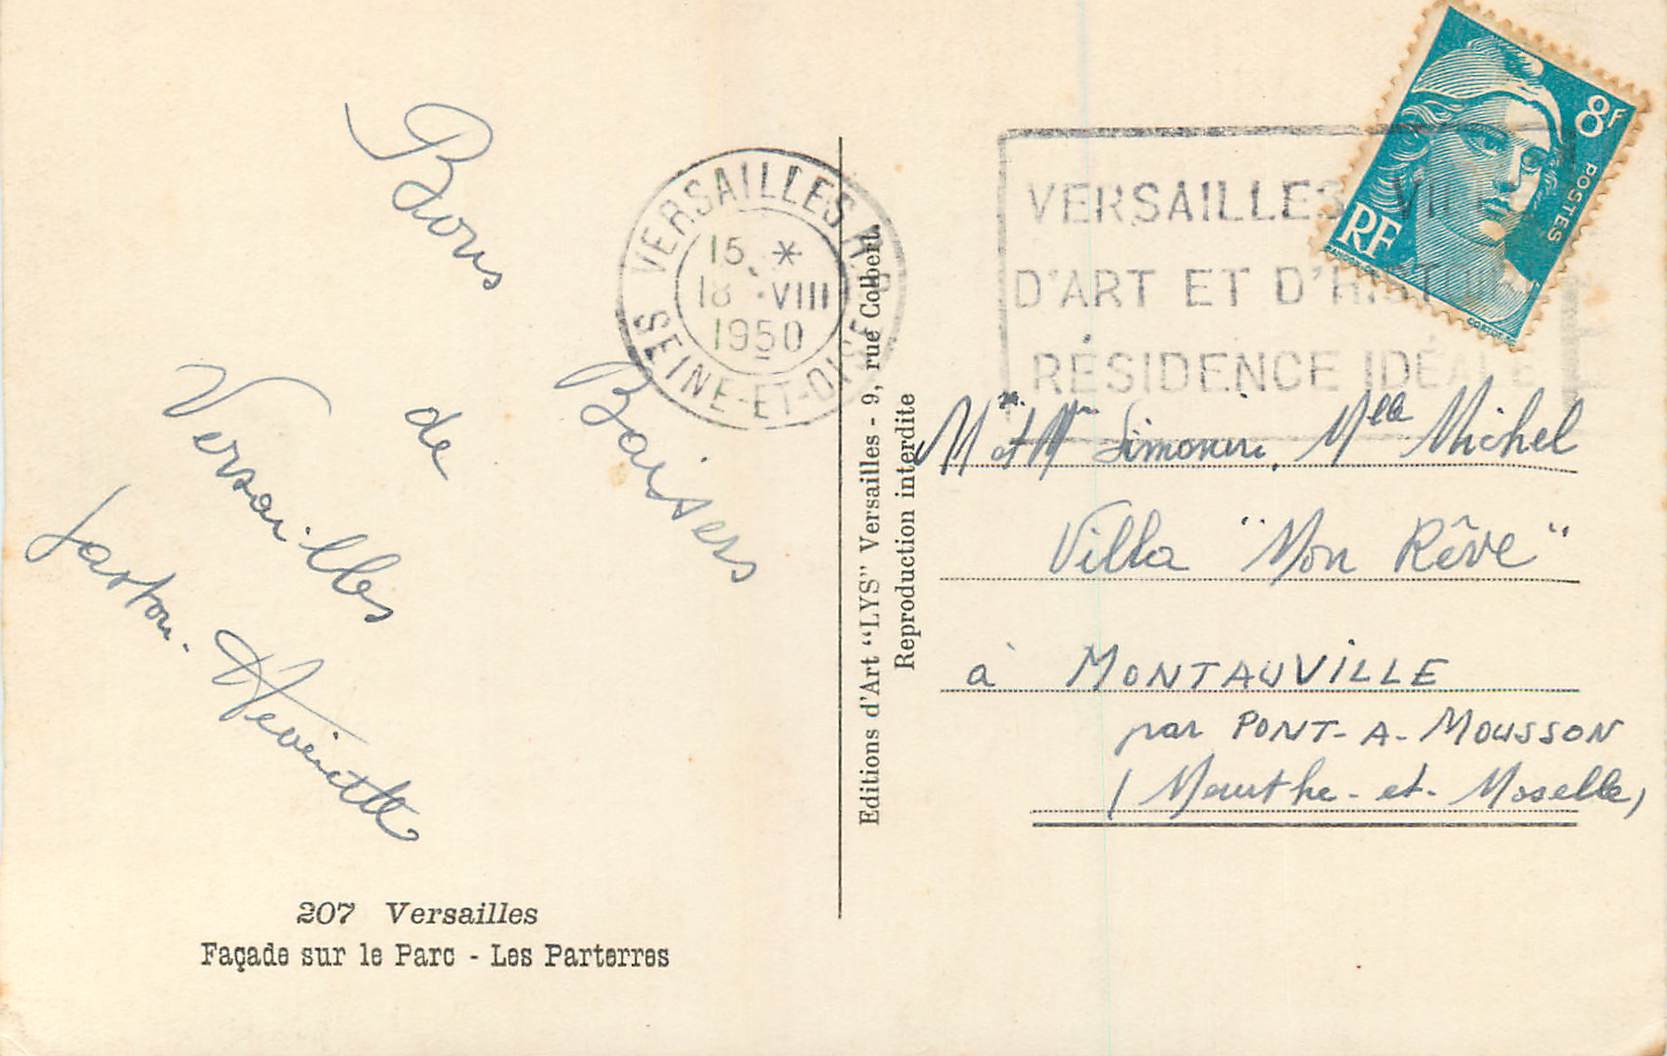 Bons
Baisers
de
Versailles
Gaston. Henriette
207 Versailles
Façade sur le Parc - Les Parterres
VERSAILLES R.P.
15 *
18 VIII
1950
SEINE-ET-OISE
Editions d'Art “LYS” Versailles - 9, rue Colbert.
Reproduction interdite
VERSAILLES VILLE
D'ART ET D'HISTOIRE
RÉSIDENCE IDÉALE
8F
POSTES
RF
M et Mme Simonin, Mlle Michel
Villa "Mon Rêve"
à MONTAUVILLE
par PONT-A-MOUSSON
(Meurthe-et-Moselle)